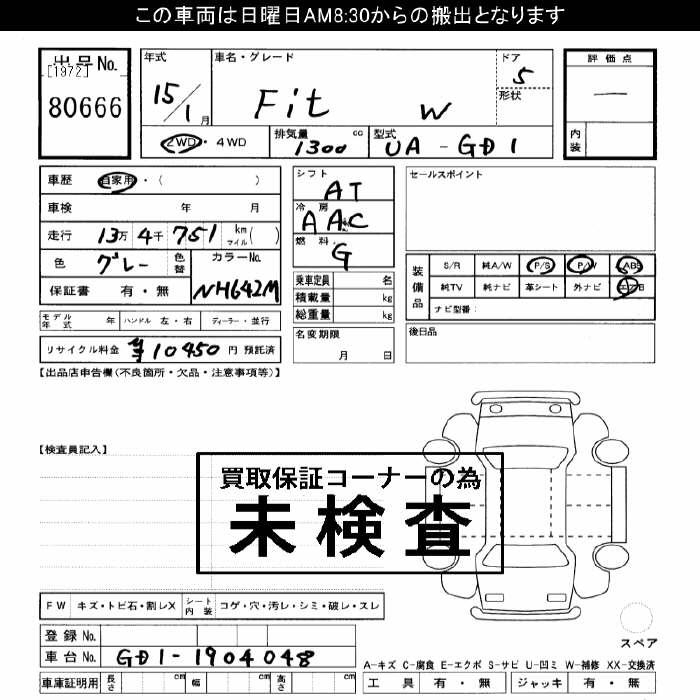 この車両は日曜日AM8:30からの搬出となります
出品No.
[1972]
80666
年式 車名・グレード ドア
15/1月 Fit W 5
形状
2WD・4WD 排気量 1300 cc 型式 UA-GD1
評価点
—
内装
車歴 自家用・( )
車検 年 月
走行 13万 4千 751 km マイル( )
色 グレー 色替 カラーNo.
保証書 有・無 NH642M
モデル年式 年 ハンドル 左・右 ディーラー・並行
リサイクル料金 ¥10450円 預託済
シフト AT
冷房 AAC
燃料 G
乗車定員 名
積載量 kg
総重量 kg
名変期限
月 日
セールスポイント
装備品 S/R 純A/W P/S P/W ABS
純TV 純ナビ 革シート 外ナビ エアB
ナビ型番:
後日品
【出品店申告欄(不良箇所・欠品・注意事項等)】
【検査員記入】
買取保証コーナーの為
未検査
FW キズ・トビ石・割レX シート内装 コゲ・穴・汚レ・シミ・破レ・スレ
登録No.
車台No. GD1-1904048
車庫証明用 長さ cm 幅 cm 高さ cm
スペア
A-キズ C-腐食 E-エクボ S-サビ U-凹ミ W-補修 XX-交換済
工具 有・無 ジャッキ 有・無